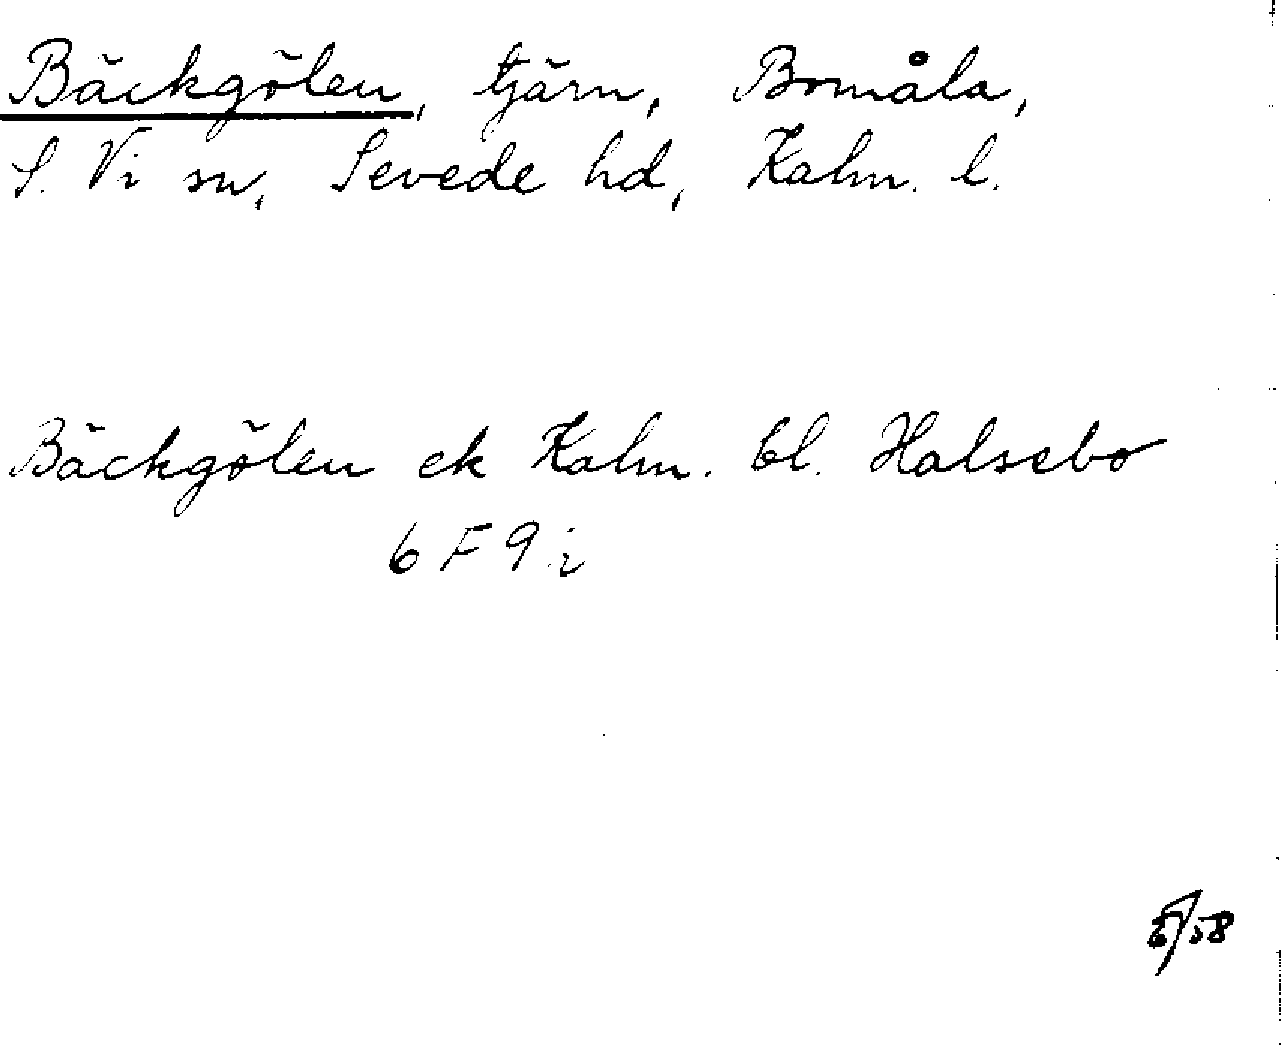 Bäckgölen, tjärn, Bomåla,
S. Vi sn, Sevede hd, Kalm. l.
Bäckgölen ek Kalm. bl. Halsebo
6 F 9 i